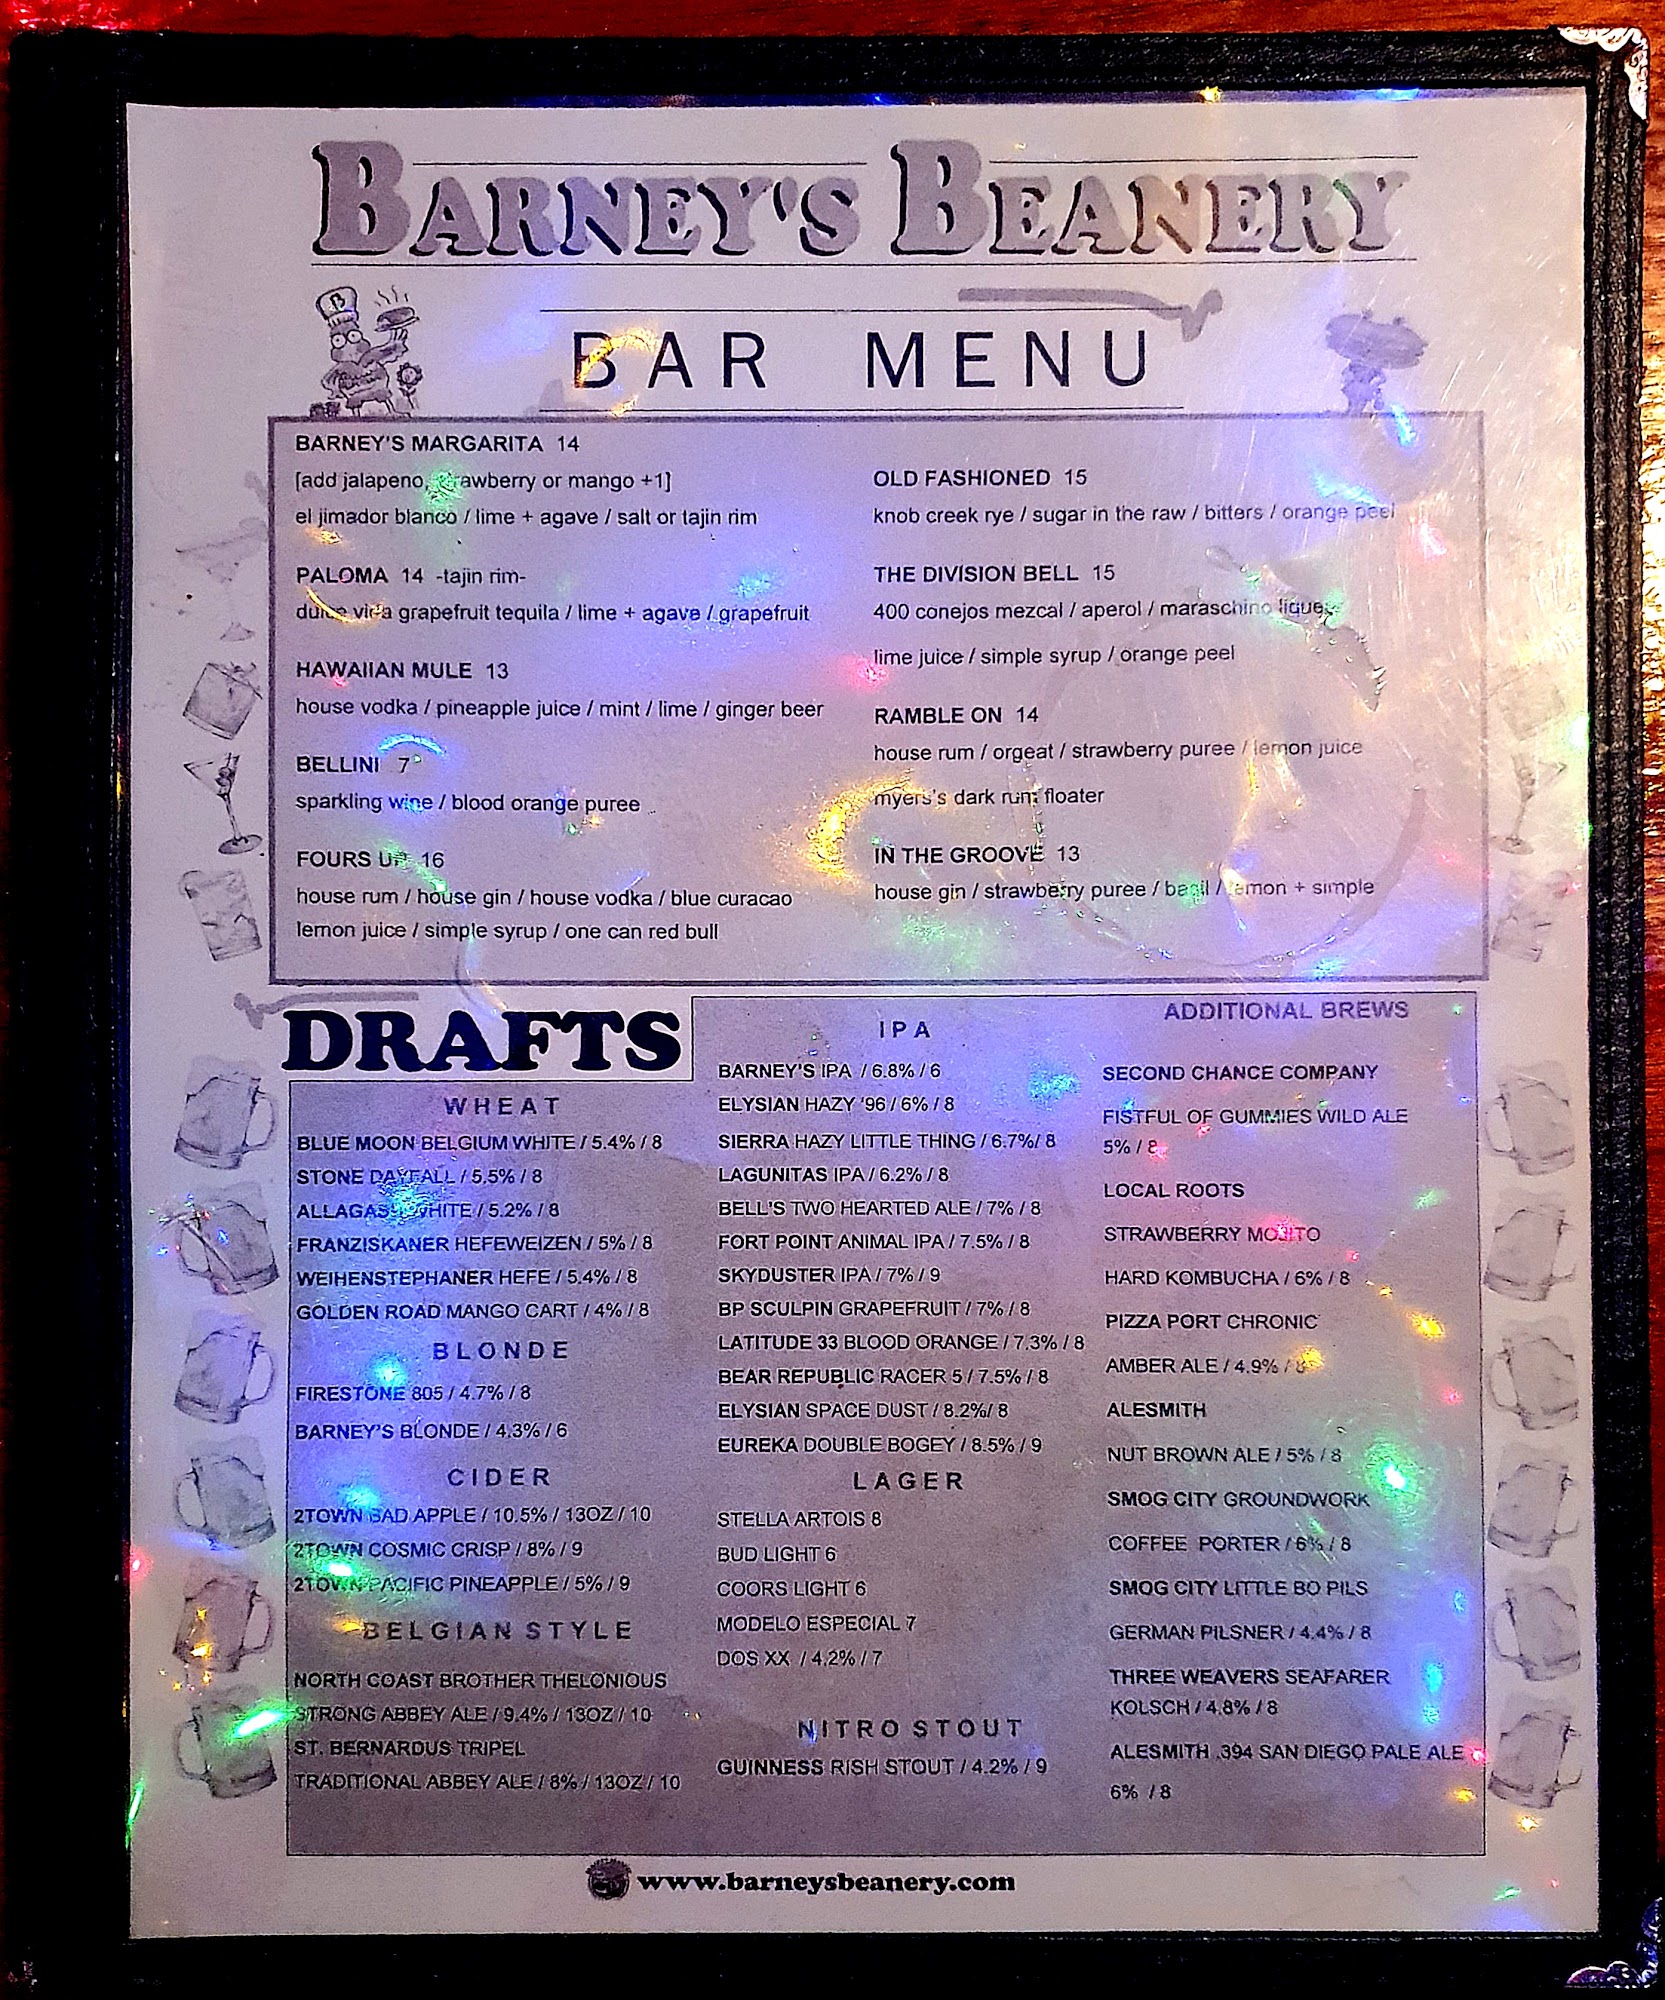 BARNEY'S BEANERY
BAR MENU
BARNEY'S MARGARITA 14
[add jalapeno, strawberry or mango +1]
el jimador blanco / lime + agave / salt or tajin rim
PALOMA 14 -tajin rim-
dulce vida grapefruit tequila / lime + agave / grapefruit
HAWAIIAN MULE 13
house vodka / pineapple juice / mint / lime / ginger beer
BELLINI 7
sparkling wine / blood orange puree
FOURS UP 16
house rum / house gin / house vodka / blue curacao
lemon juice / simple syrup / one can red bull
OLD FASHIONED 15
knob creek rye / sugar in the raw / bitters / orange peel
THE DIVISION BELL 15
400 conejos mezcal / aperol / maraschino liqueur
lime juice / simple syrup / orange peel
RAMBLE ON 14
house rum / orgeat / strawberry puree / lemon juice
myers's dark rum floater
IN THE GROOVE 13
house gin / strawberry puree / basil / lemon + simple
DRAFTS
WHEAT
BLUE MOON BELGIUM WHITE / 5.4% / 8
STONE DAYFALL / 5.5% / 8
ALLAGASH WHITE / 5.2% / 8
FRANZISKANER HEFEWEIZEN / 5% / 8
WEIHENSTEPHANER HEFE / 5.4% / 8
GOLDEN ROAD MANGO CART / 4% / 8
BLONDE
FIRESTONE 805 / 4.7% / 8
BARNEY'S BLONDE / 4.3% / 6
CIDER
2TOWN BAD APPLE / 10.5% / 13OZ / 10
2TOWN COSMIC CRISP / 8% / 9
2TOWN PACIFIC PINEAPPLE / 5% / 9
BELGIAN STYLE
NORTH COAST BROTHER THELONIOUS
STRONG ABBEY ALE / 9.4% / 13OZ / 10
ST. BERNARDUS TRIPEL
TRADITIONAL ABBEY ALE / 8% / 13OZ / 10
IPA
BARNEY'S IPA / 6.8% / 6
ELYSIAN HAZY '96 / 6% / 8
SIERRA HAZY LITTLE THING / 6.7%/ 8
LAGUNITAS IPA / 6.2% / 8
BELL'S TWO HEARTED ALE / 7% / 8
FORT POINT ANIMAL IPA / 7.5% / 8
SKYDUSTER IPA / 7% / 9
BP SCULPIN GRAPEFRUIT / 7% / 8
LATITUDE 33 BLOOD ORANGE / 7.3% / 8
BEAR REPUBLIC RACER 5 / 7.5% / 8
ELYSIAN SPACE DUST / 8.2%/ 8
EUREKA DOUBLE BOGEY / 8.5% / 9
LAGER
STELLA ARTOIS 8
BUD LIGHT 6
COORS LIGHT 6
MODELO ESPECIAL 7
DOS XX / 4.2% / 7
NITRO STOUT
GUINNESS RISH STOUT / 4.2% / 9
ADDITIONAL BREWS
SECOND CHANCE COMPANY
FISTFUL OF GUMMIES WILD ALE
5% / 8
LOCAL ROOTS
STRAWBERRY MOJITO
HARD KOMBUCHA / 6% / 8
PIZZA PORT CHRONIC
AMBER ALE / 4.9% / 8
ALESMITH
NUT BROWN ALE / 5% / 8
SMOG CITY GROUNDWORK
COFFEE PORTER / 6% / 8
SMOG CITY LITTLE BO PILS
GERMAN PILSNER / 4.4% / 8
THREE WEAVERS SEAFARER
KOLSCH / 4.8% / 8
ALESMITH .394 SAN DIEGO PALE ALE
6% / 8
www.barneysbeanery.com